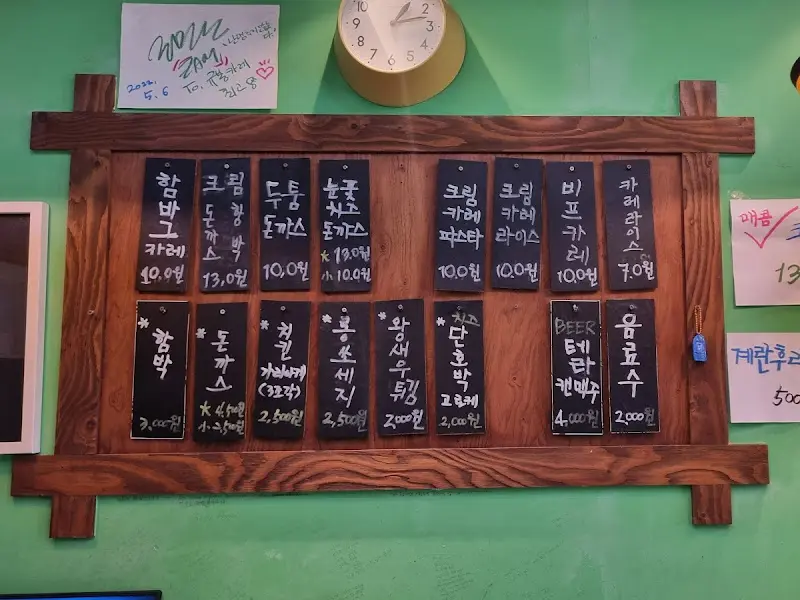 2022.
5.6
To.
카레
10
2
1
9
3
8
4
7
6
5
함바그
카레
10.0원
크림
돈까스
함박
13.0원
두툼
돈까스
10,0원
눈꽃
치즈
돈까스
* 13.0원
小 10.0원
크림
카레
파스타
10.0원
크림
카레
라이스
10.0원
비프카레
10.0원
카레라이스
7.0원
* 함박
3,000원
* 돈까스
* 4,500원
小 2,500원
* 치킨
가라아게
(3조각)
2,500원
* 롱쏘세지
2,500원
* 왕새우튀김
2,000원
* 치즈
단호박
고로케
2,000원
BEER
테라
캔맥주
4,000원
음료수
2,000원
매콤
13
계란후라
500